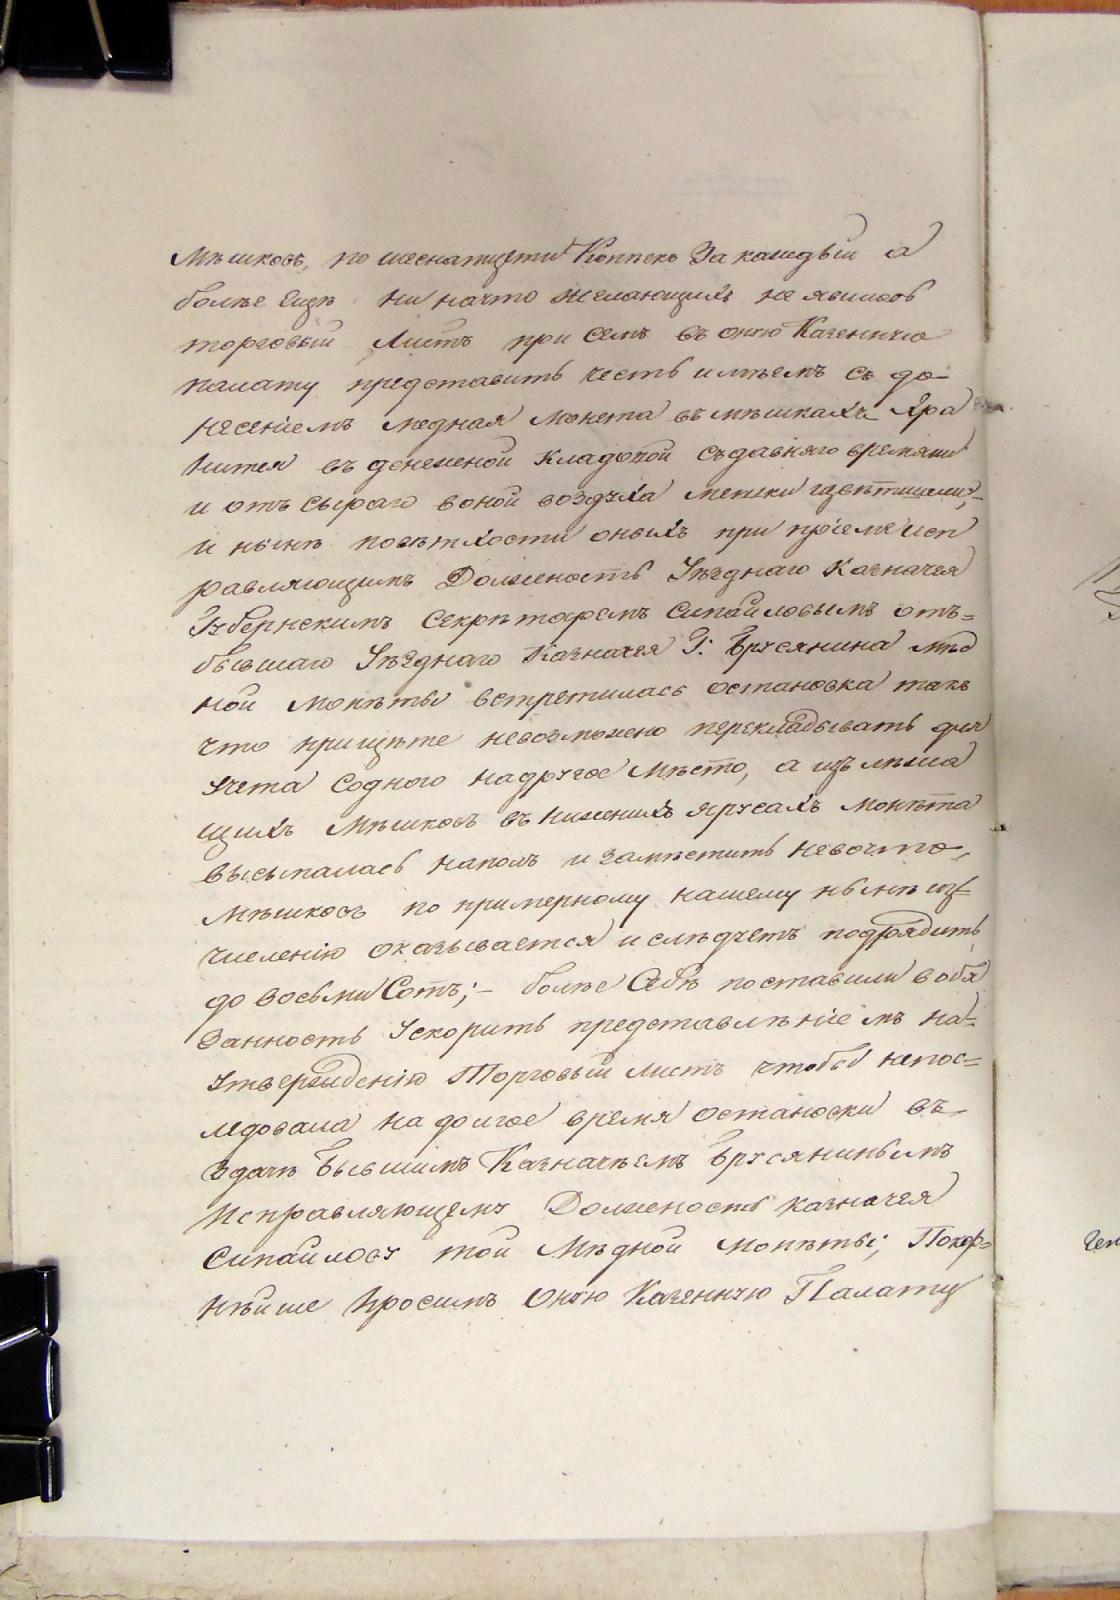 Мѣшковъ, по шеснатцети Коппекъ За каждый а
болѣе Ещѣ ни начто желающихъ не явилось
торговый Листъ при семъ въ оную Казенную
палату представить честь имѣемъ съ до-
несениемъ медная монета въ мѣшкахъ Хра
нится въ денежной кладовой съ давняго времяни
и отъ сыраго воной воздуха мешки
и нынѣ поветхости оныхъ при приеме исп
равляющимъ Должность Уѣзднаго Казначея
Губернскимъ Секрѣтаремъ Сипайловымъ отъ-
бывшаго Уѣзднаго Казначея Г: Брусянина мѣд
ной монѣты встретилась остановка такъ
что прищѣте невозможно перекладывать для
Учета Содного надругое мѣсто, а изъ лѣжа
щихъ мѣшковъ въ нижнихъ ярусахъ монѣта
высыпалась наполъ и замѣстить невочто,
Мѣшковъ по примерному нашему нынѣ из-
числению оказывается и слѣдуетъ подрядить
до восьми Сотъ;- болѣе Себѣ поставили вобя
Занность Ускорить представлѣниемъ на-
Утверждению Торговый листъ чтобы непос=
ледовала на долгое время остановки въ
Здаче Бывшимъ Казначѣемъ Брусянинымъ
Исправляющему Должность казначея
Сипайлову той Мѣдной монѣты; Покор=
нѣйше просимъ Оную Казенную Палату